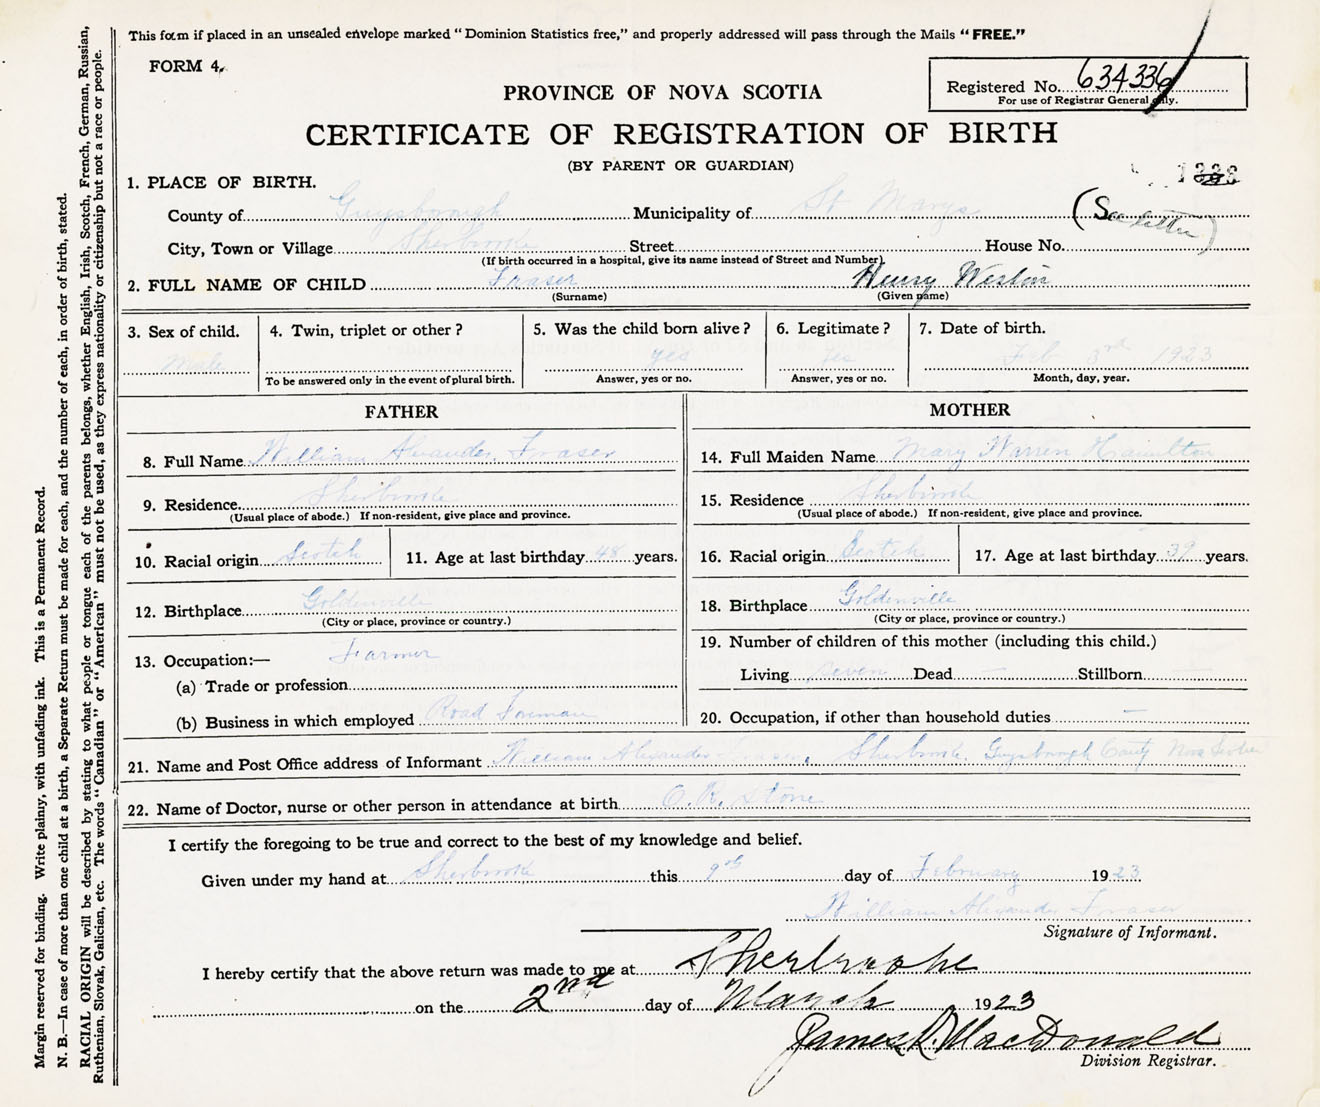 This form if placed in an unsealed envelope marked "Dominion Statistics free," and properly addressed will pass through the Mails "FREE."
FORM 4.
Registered No. 634336
For use of Registrar General only.
PROVINCE OF NOVA SCOTIA
CERTIFICATE OF REGISTRATION OF BIRTH
(BY PARENT OR GUARDIAN)
1. PLACE OF BIRTH.
County of Guysborough Municipality of St Marys (See letter)
City, Town or Village Sherbrooke Street House No.
(If birth occurred in a hospital, give its name instead of Street and Number).
2. FULL NAME OF CHILD Fraser Henry Weslin
(Surname) (Given name)
3. Sex of child. 4. Twin, triplet or other? 5. Was the child born alive? 6. Legitimate? 7. Date of birth.
Male yes Yes Feb 3rd 1923
To be answered only in the event of plural birth. Answer, yes or no. Answer, yes or no. Month, day, year.
FATHER
8. Full Name William Alexander Fraser
9. Residence Sherbrooke
(Usual place of abode.) If non-resident, give place and province.
10. Racial origin Scotch 11. Age at last birthday 48 years.
12. Birthplace Goldenville
(City or place, province or country.)
13. Occupation:— Farmer
(a) Trade or profession
(b) Business in which employed Road Forman
MOTHER
14. Full Maiden Name Mary Warren Hamilton
15. Residence Sherbrooke
(Usual place of abode.) If non-resident, give place and province.
16. Racial origin Scotch 17. Age at last birthday 39 years.
18. Birthplace Goldenville
(City or place, province or country.)
19. Number of children of this mother (including this child.)
Living seven Dead — Stillborn —
20. Occupation, if other than household duties —
21. Name and Post Office address of Informant William Alexander Fraser, Sherbrooke, Guysborough County Nova Scotia
22. Name of Doctor, nurse or other person in attendance at birth O. R. Stone
I certify the foregoing to be true and correct to the best of my knowledge and belief.
Given under my hand at Sherbrooke this 9th day of February 1923
William Alexander Fraser
Signature of Informant.
I hereby certify that the above return was made to me at Sherbrooke
on the 2nd day of March 1923
James R. MacDonald
Division Registrar.
Margin reserved for binding. Write plainy, with unfading ink. This is a Permanent Record.
N. B.—In case of more than one child at a birth, a Separate Return must be made for each, and the number of each, in order of birth, stated.
RACIAL ORIGIN will be described by stating to what people or tongue each of the parents belongs, whether English, Irish, Scotch, French, German, Russian,
Ruthenian, Slovak, Galician, etc. The words "Canadian" or "American" must not be used, as they express nationality or citizenship but not a race or people.